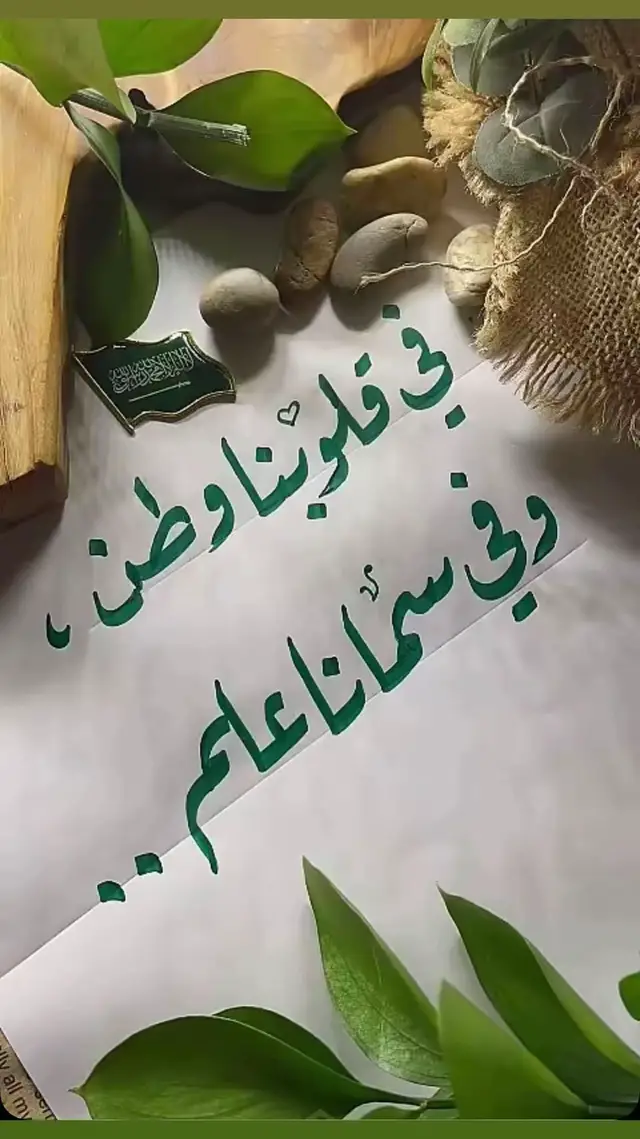 في قلوبنا وطن ،
وفي سمانا علم ..
لا إله إلا الله محمد رسول الله